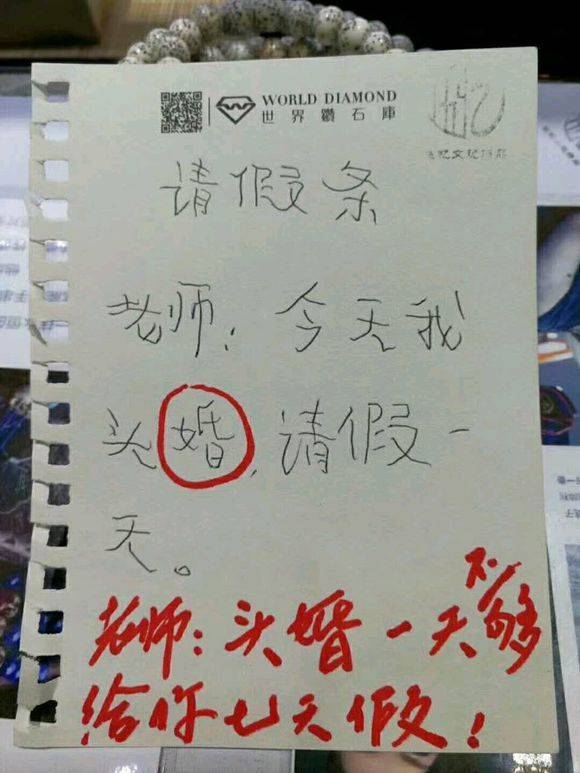 WORLD DIAMOND
世界鑽石庫
请假条
老师：今天我
头婚，请假一
天。
老师：头婚一天不够
给你七天假！